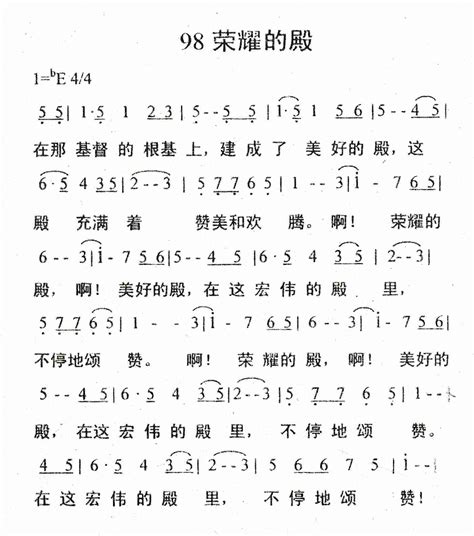 98 荣耀的殿
1=bE 4/4
5 5| 1·5 1 2 3 | 5--5 5 | i·5 1 5 6 | 5--4 5 |
在那 基督 的 根基 上，建成 了 美 好的 殿，这
6·5 4 3 5 | 2--3 | 5 7 7 6 5 | 1--3 | i - 7 6 5 |
殿 充满 着 赞美和欢 腾。啊！ 荣耀的
6--3 | i - 7 5 6 | 5--4 5 | 6·5 4 3 5 | 2--3 |
殿，啊！美好的殿，在这宏伟的殿 里，
5 7 7 6 5 | 1--3 | i - 7 6 5 | 6--3 | i - 7 5 6 |
不停地颂 赞。 啊！荣耀的殿，啊！ 美好的
5--4 5 | 6·5 4 3 5 | 2--3 | 5 7 7 6 5 | 1--
殿，在这宏伟的殿里， 不停地颂 赞。
4 5 | 6·5 4 3 5 | 2--3 | 5 6 6 7 5 | i--‖
在这宏伟的殿 里，不停地颂 赞！